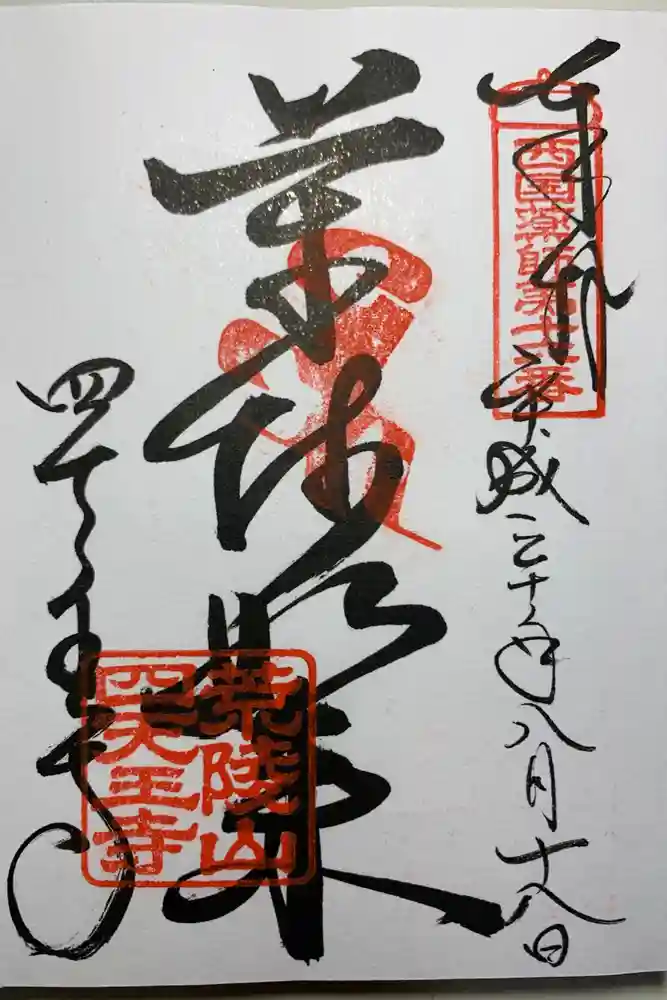 奉拝
西国薬師第十六番
平成三十年八月十八日
薬師如来
四天王寺
荒陵山
四天王寺